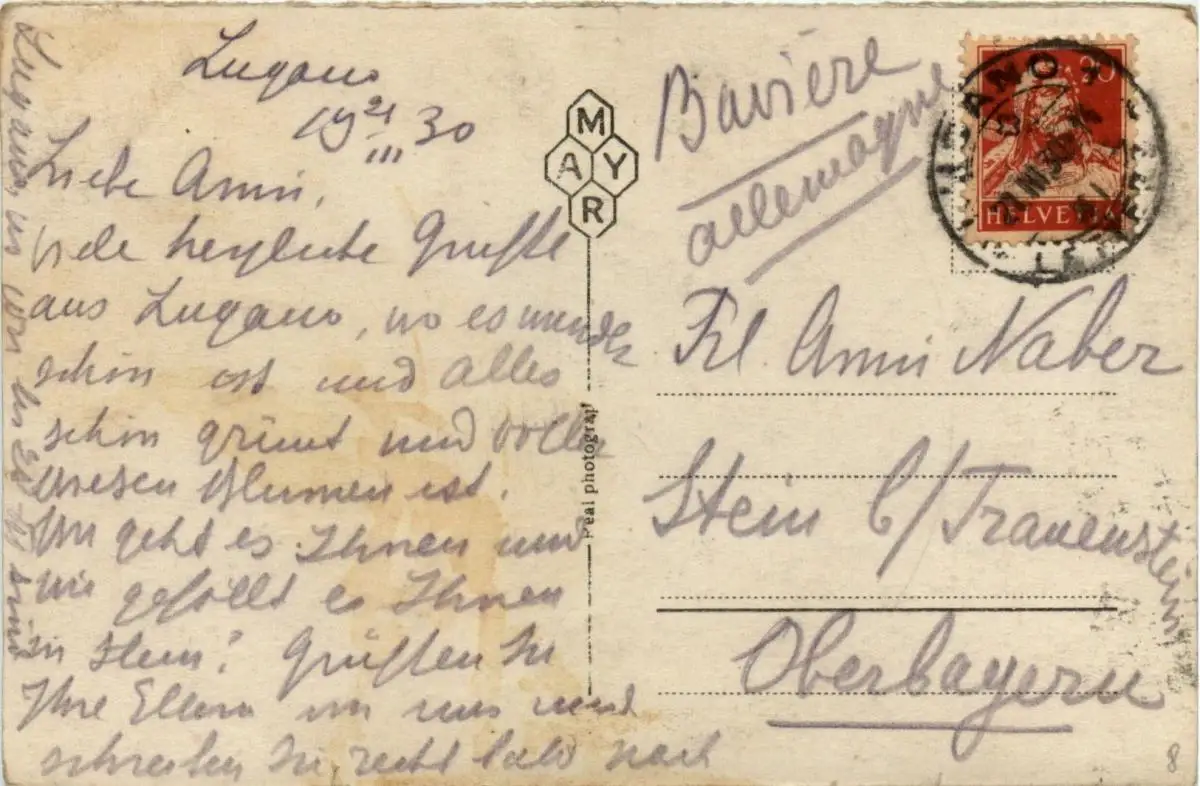 Lugano
19 21/III 30
Liebe Anni,
viele herzliche Grüße
aus Lugano, wo es
schön ist und alles
schön grünt und voller
Wiesenblumen ist.
Wie geht es Ihnen und
wie gefällt es Ihnen
in Stein? Grüßen Sie
Ihre Eltern von uns und
schreiben Sie recht bald nach
Lugano, wo wir bis
MAYR
Real photograph
Bavière
allemagne
HELVETIA
20
LUGANO
21.III.30
Frl. Anni Naber
Stein b/Trauenstein
Oberbayern
8